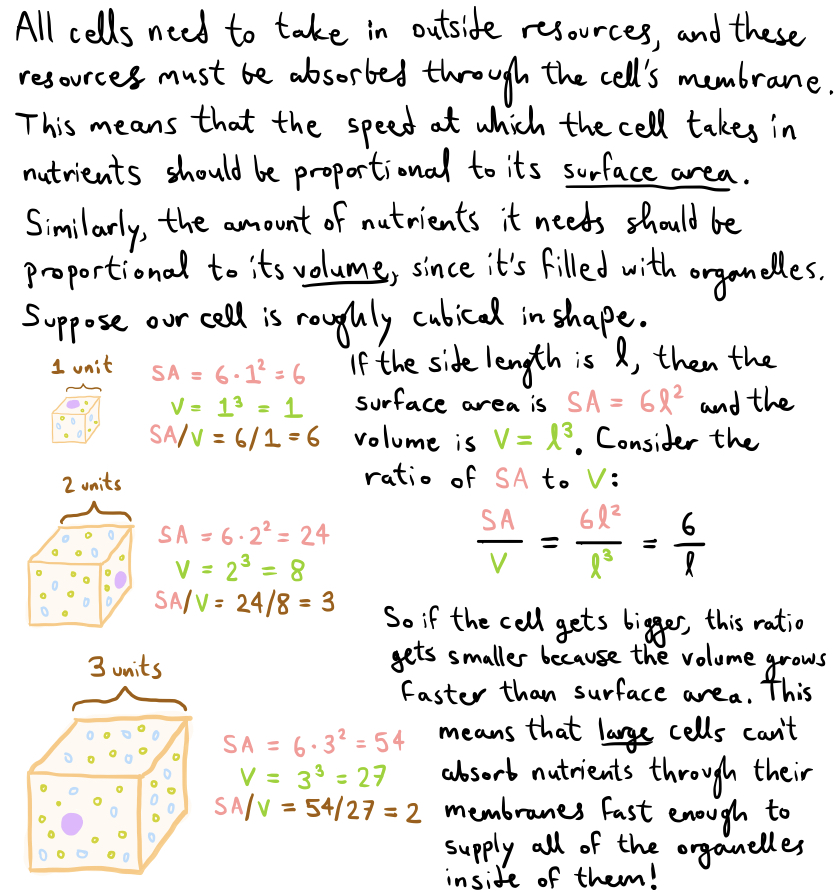 All cells need to take in outside resources, and these
resources must be absorbed through the cell's membrane.
This means that the speed at which the cell takes in
nutrients should be proportional to its surface area.
Similarly, the amount of nutrients it needs should be
proportional to its volume, since it's filled with organelles.
Suppose our cell is roughly cubical in shape.
1 unit
SA = 6·1² = 6
V = 1³ = 1
SA/V = 6/1 = 6
2 units
SA = 6·2² = 24
V = 2³ = 8
SA/V = 24/8 = 3
3 units
SA = 6·3² = 54
V = 3³ = 27
SA/V = 54/27 = 2
If the side length is l, then the
surface area is SA = 6l² and the
volume is V = l³. Consider the
ratio of SA to V:
SA/V = 6l²/l³ = 6/l
So if the cell gets bigger, this ratio
gets smaller because the volume grows
faster than surface area. This
means that large cells can't
absorb nutrients through their
membranes fast enough to
supply all of the organelles
inside of them!